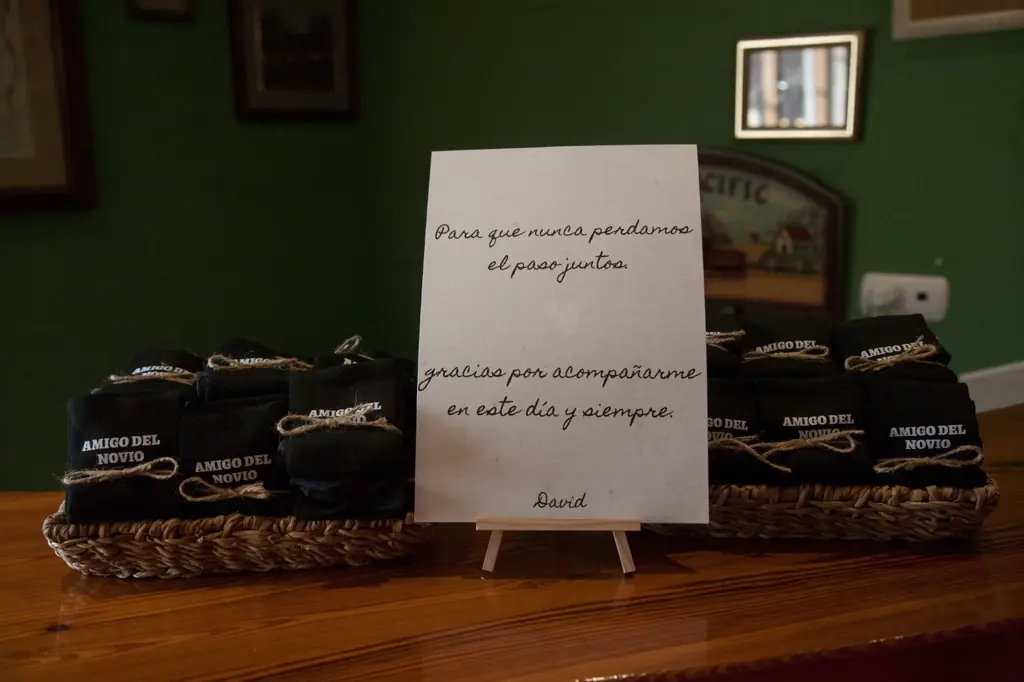 CIFIC
Para que nunca perdamos
el paso juntos.
gracias por acompañarme
en este día y siempre.
David
AMIGO DEL
AMIGO DEL
AMIGO DEL
NOVIO
AMIGO DEL
NOVIO
AMIGO DEL
AMIGO DEL
AMIGO DEL
NOVIO
AMIGO DEL
NOVIO
AMIGO DEL
NOVIO